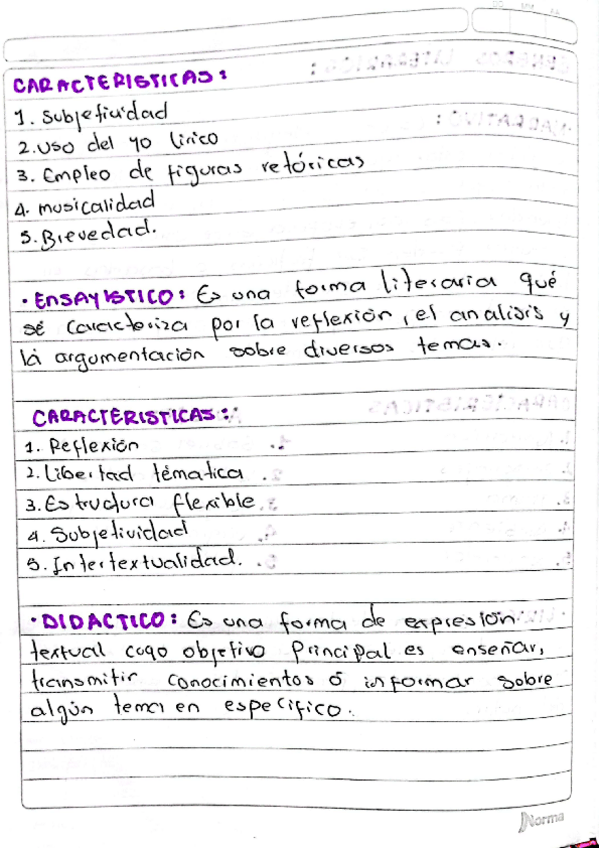 CARACTERISTICAS:
1. Subjetividad
2. Uso del yo lirico
3. Empleo de figuras retóricas
4. musicalidad
5. Brevedad.
• ENSAYISTICO: Es una forma literaria qué
sé caracteriza por la reflexión, el analisis y
la argumentación sobre diversos temas.
CARACTERISTICAS:
1. Reflexión
2. Libertad témática
3. Estructura flexible
4. Subjetividad
5. Intertextualidad.
• DIDACTICO: Es una forma de expresión
textual cuyo objetivo principal es enseñar,
transmitir conocimientos ó informar sobre
algún tema en especifico.
Norma